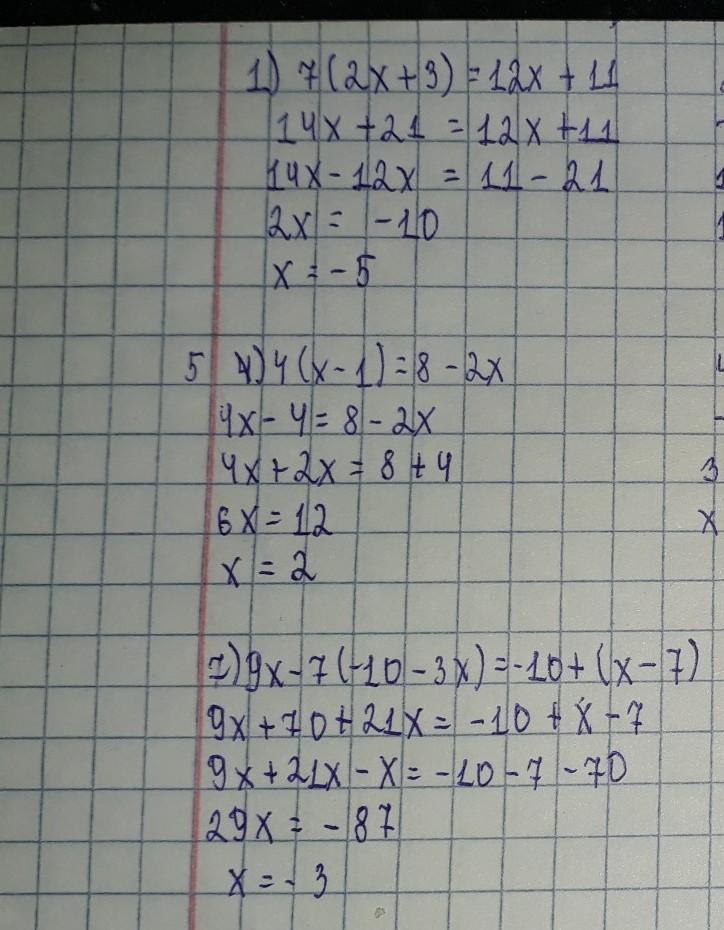 1) 7(2x+3)=12x+11
14x+21=12x+11
14x-12x=11-21
2x=-10
x=-5
5 4) 4(x-1)=8-2x
4x-4=8-2x
4x+2x=8+4
6x=12
x=2
7) 9x-7(-10-3x)=-10+(x-7)
9x+70+21x=-10+x-7
9x+21x-x=-10-7-70
29x=-87
x=-3
3
x